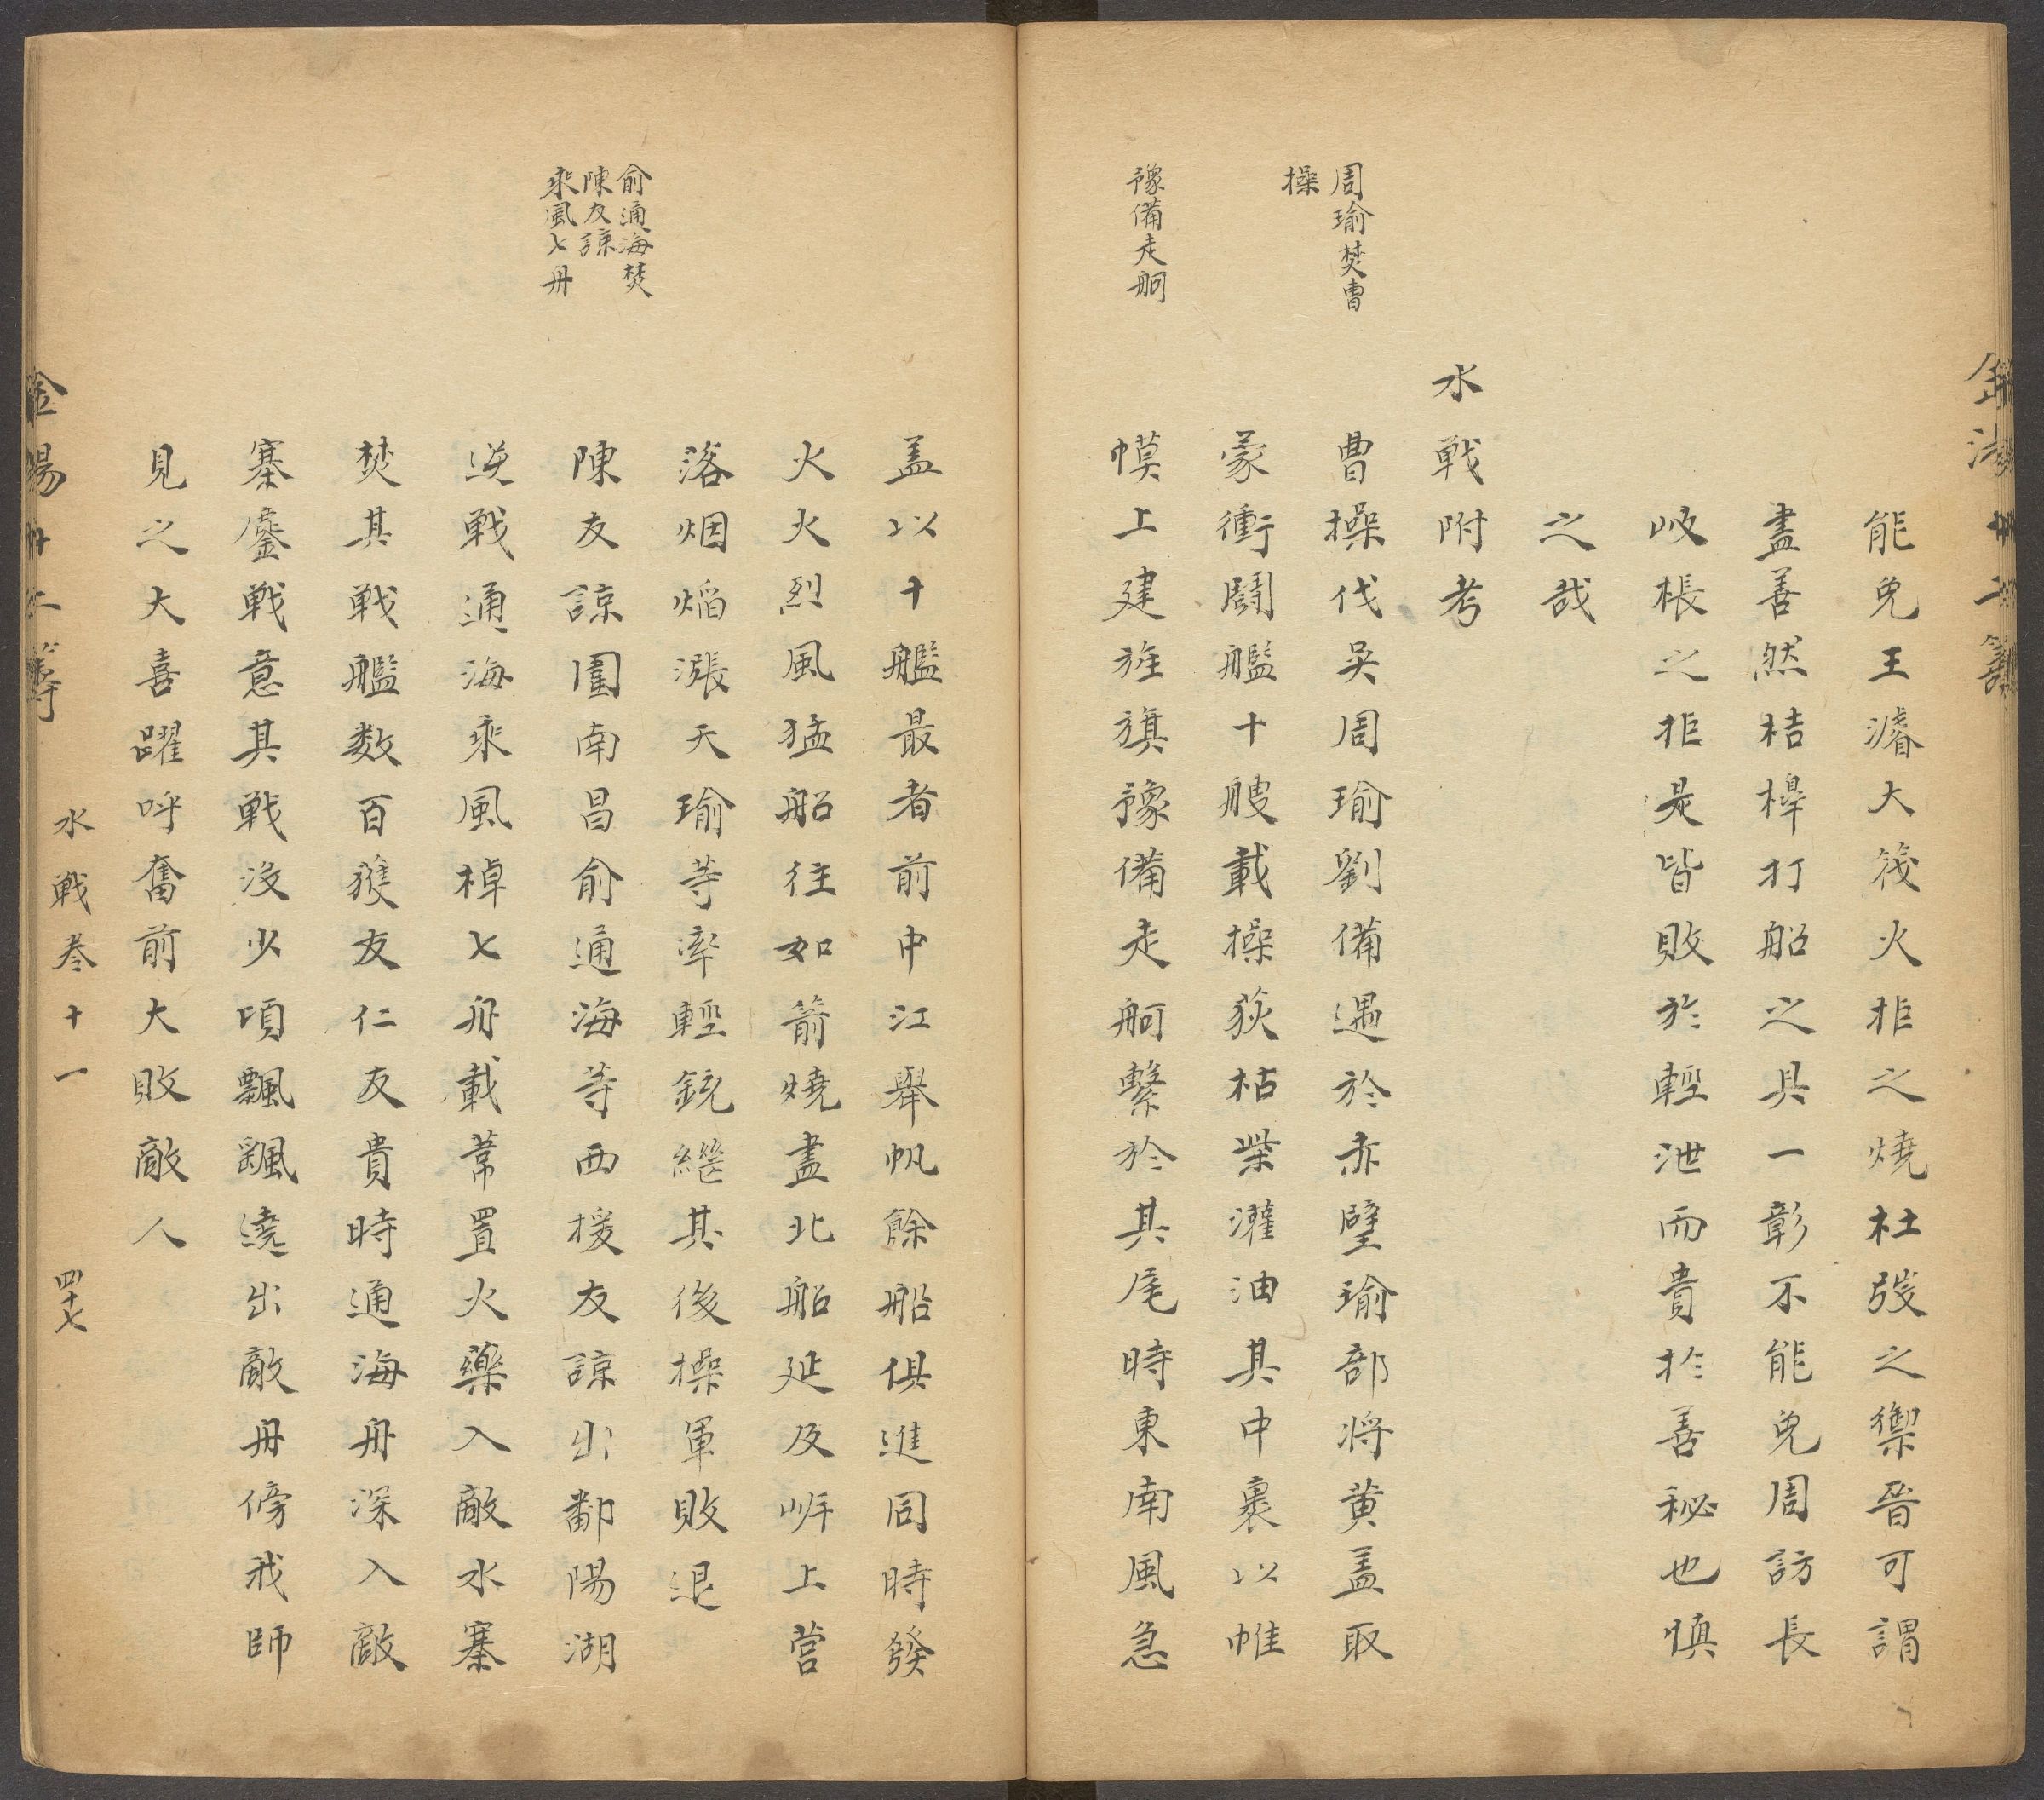 能免王濬大筏火炬之燒杜弢之禦晉可謂
盡善然桔槹打船之具一彰不能免周訪長
岐棖之炬是皆敗於輕泄而貴於善秘也慎
之哉
水戰附考
周瑜焚曹
操
曹操伐吳周瑜劉備遇於赤壁瑜部將黃蓋取
蒙衝鬪艦十艘載操荻枯柴灌油其中裹以帷
豫備走舸
幙上建旌旗豫備走舸繫於其尾時東南風急
盖以十艦最者前中江舉帆餘船俱進同時發
火火烈風猛船往如箭燒盡北船延及岸上营
落烟焰漲天瑜等率輕銳繼其後操軍敗退
俞通海焚
陳友諒
乘風七舟
陳友諒圍南昌俞通海等西援友諒出鄱陽湖
逆戰通海乘風棹七舟載葦置火藥入敵水寨
焚其戰艦数百獲友仁友貴時通海舟深入敵
寨鏖戰意其戰沒少項飄颻遶出敵舟傍我師
見之大喜躍呼奮前大敗敵人
水戰卷十一
四十七